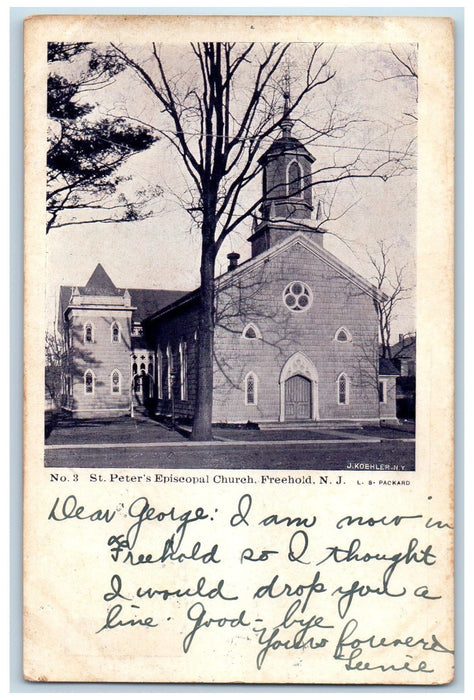 J. KOEHLER. N.Y.
No. 3 St. Peter's Episcopal Church, Freehold, N. J. L. S. PACKARD
Dear George: I am now in
Freehold so I thought
I would drop you a
line. Good-bye
Yours forever